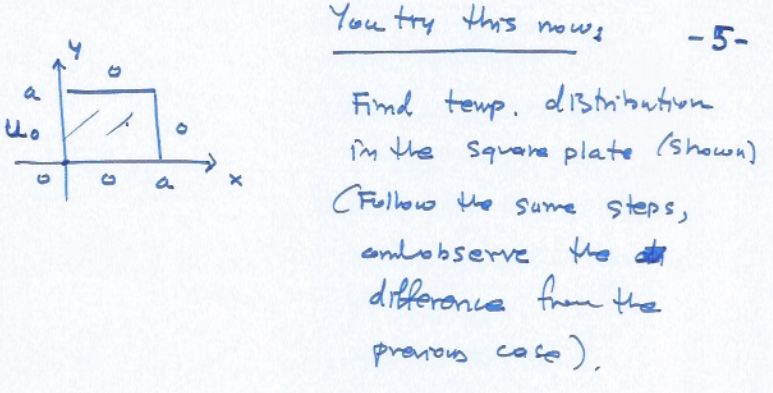 You try this now:
-5-
y
0
a
u₀
0
0
0
a
x
Find temp. distribution
in the square plate (shown)
(Follow the same steps,
and observe the
difference from the
previous case).